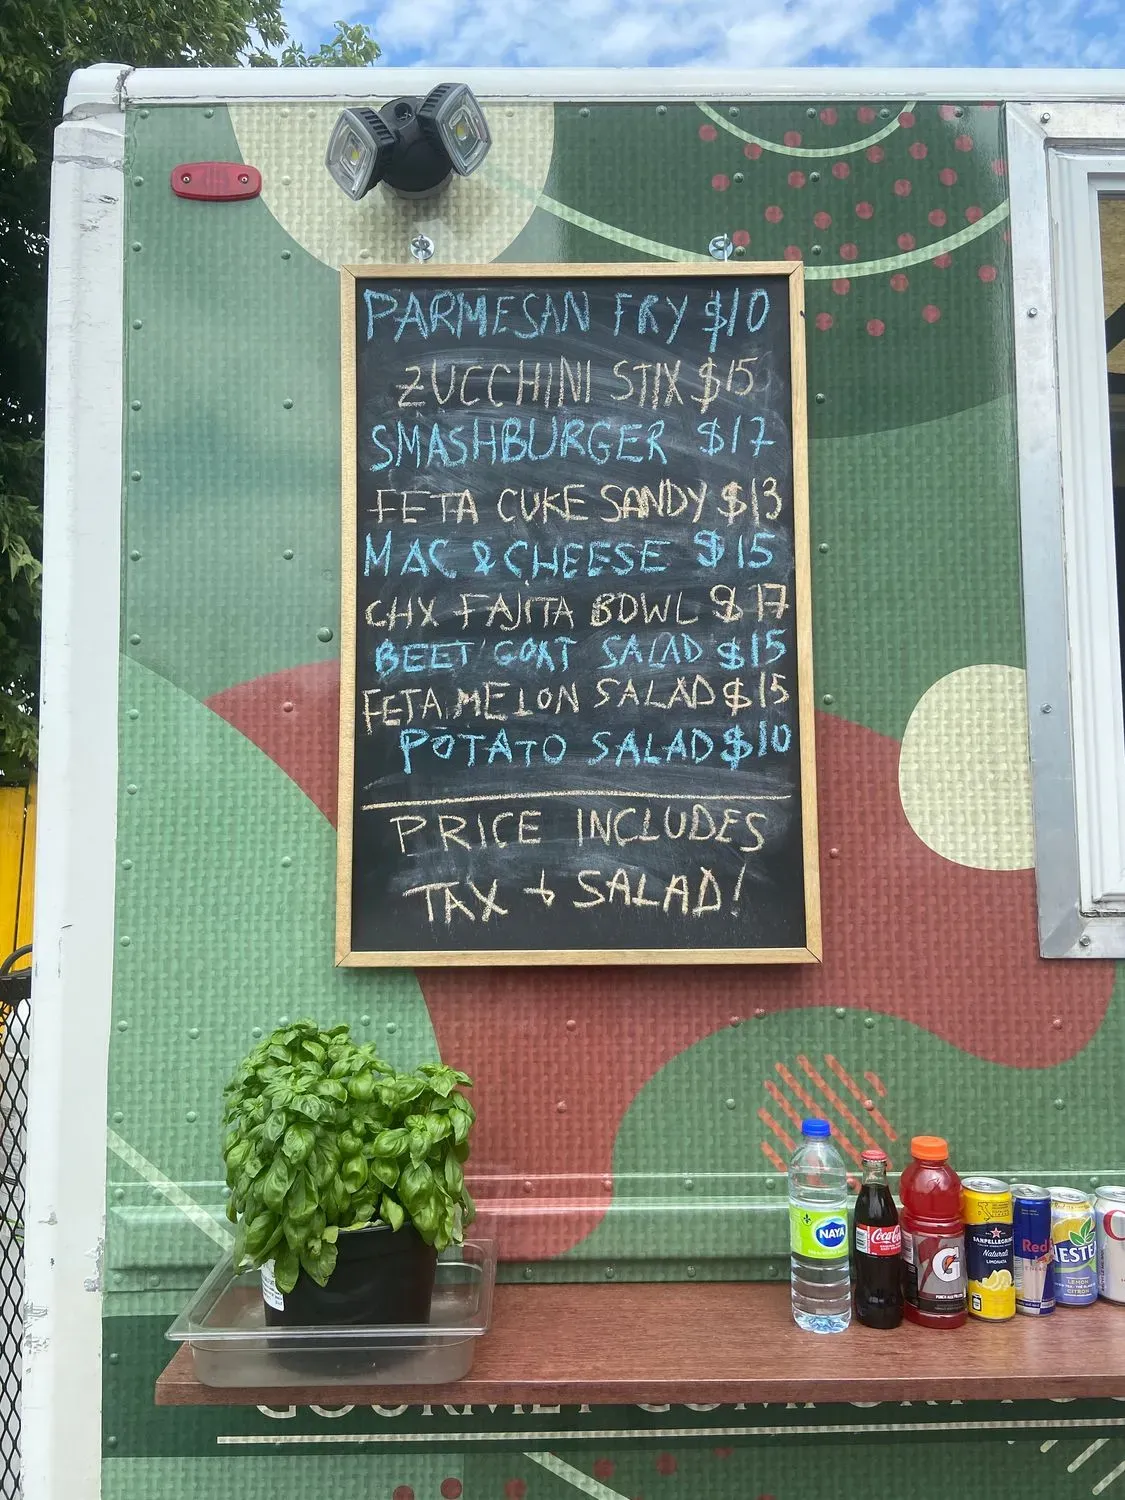 PARMESAN FRY $10
ZUCCHINI STIX $15
SMASHBURGER $17
FETA CUKE SANDY $13
MAC & CHEESE $15
CHX FAJITA BOWL $17
BEET GOAT SALAD $15
FETA MELON SALAD $15
POTATO SALAD $10
PRICE INCLUDES
TAX + SALAD!
NAYA
Coca-Cola
G
SANPELLEGRINO
Naturali
LIMONATA
Red
NESTEA
LEMON
CITRON
GOURMET COMFORT